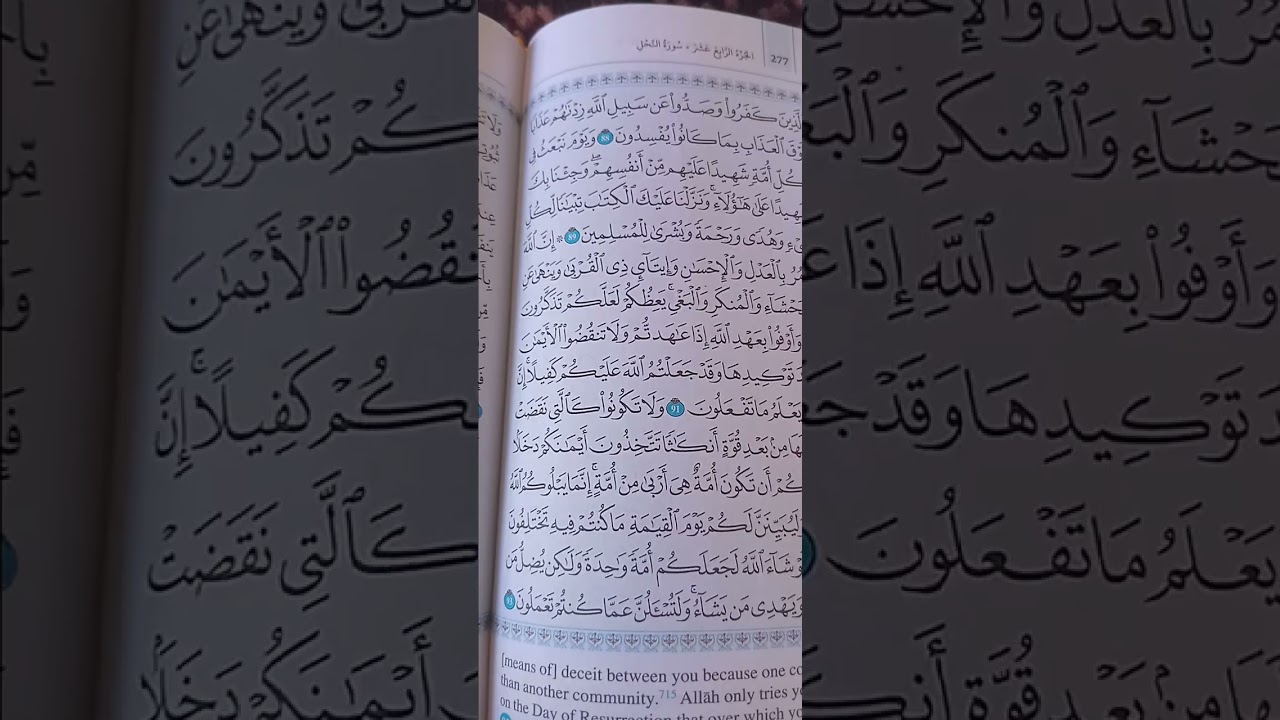 277
الجزء الرابع عشر • سورة النحل
كَفَرُوا۟ وَصَدُّوا۟ عَن سَبِيلِ ٱللَّهِ زِدْنَـٰهُمْ عَذَابًا
ٱلْعَذَابِ بِمَا كَانُوا۟ يُفْسِدُونَ 88 وَيَوْمَ نَبْعَثُ فِى
كُلِّ أُمَّةٍ شَهِيدًا عَلَيْهِم مِّنْ أَنفُسِهِمْ ۖ وَجِئْنَا بِكَ
هِيدًا عَلَىٰ هَـٰٓؤُلَآءِ ۚ وَنَزَّلْنَا عَلَيْكَ ٱلْكِتَـٰبَ تِبْيَـٰنًا لِّكُلِّ
ىْءٍ وَهُدًى وَرَحْمَةً وَبُشْرَىٰ لِلْمُسْلِمِينَ 89 ۞ إِنَّ ٱللَّهَ
مُرُ بِٱلْعَدْلِ وَٱلْإِحْسَـٰنِ وَإِيتَآئِ ذِى ٱلْقُرْبَىٰ وَيَنْهَىٰ عَنِ
حْشَآءِ وَٱلْمُنكَرِ وَٱلْبَغْىِ ۚ يَعِظُكُمْ لَعَلَّكُمْ تَذَكَّرُونَ
وَأَوْفُوا۟ بِعَهْدِ ٱللَّهِ إِذَا عَـٰهَدتُّمْ وَلَا تَنقُضُوا۟ ٱلْأَيْمَـٰنَ
دَ تَوْكِيدِهَا وَقَدْ جَعَلْتُمُ ٱللَّهَ عَلَيْكُمْ كَفِيلًا ۚ إِنَّ
يَعْلَمُ مَا تَفْعَلُونَ 91 وَلَا تَكُونُوا۟ كَٱلَّتِى نَقَضَتْ
هَا مِنۢ بَعْدِ قُوَّةٍ أَنكَـٰثًا تَتَّخِذُونَ أَيْمَـٰنَكُمْ دَخَلًۢا
كُمْ أَن تَكُونَ أُمَّةٌ هِىَ أَرْبَىٰ مِنْ أُمَّةٍ ۚ إِنَّمَا يَبْلُوكُمُ ٱللَّهُ
لَيُبَيِّنَنَّ لَكُمْ يَوْمَ ٱلْقِيَـٰمَةِ مَا كُنتُمْ فِيهِ تَخْتَلِفُونَ
وْ شَآءَ ٱللَّهُ لَجَعَلَكُمْ أُمَّةً وَٰحِدَةً وَلَـٰكِن يُضِلُّ مَن
وَيَهْدِى مَن يَشَآءُ ۚ وَلَتُسْـَٔلُنَّ عَمَّا كُنتُمْ تَعْمَلُونَ 93
[means of] deceit between you because one co
than another community.715 Allāh only tries y
on the Day of Resurrection that over which y